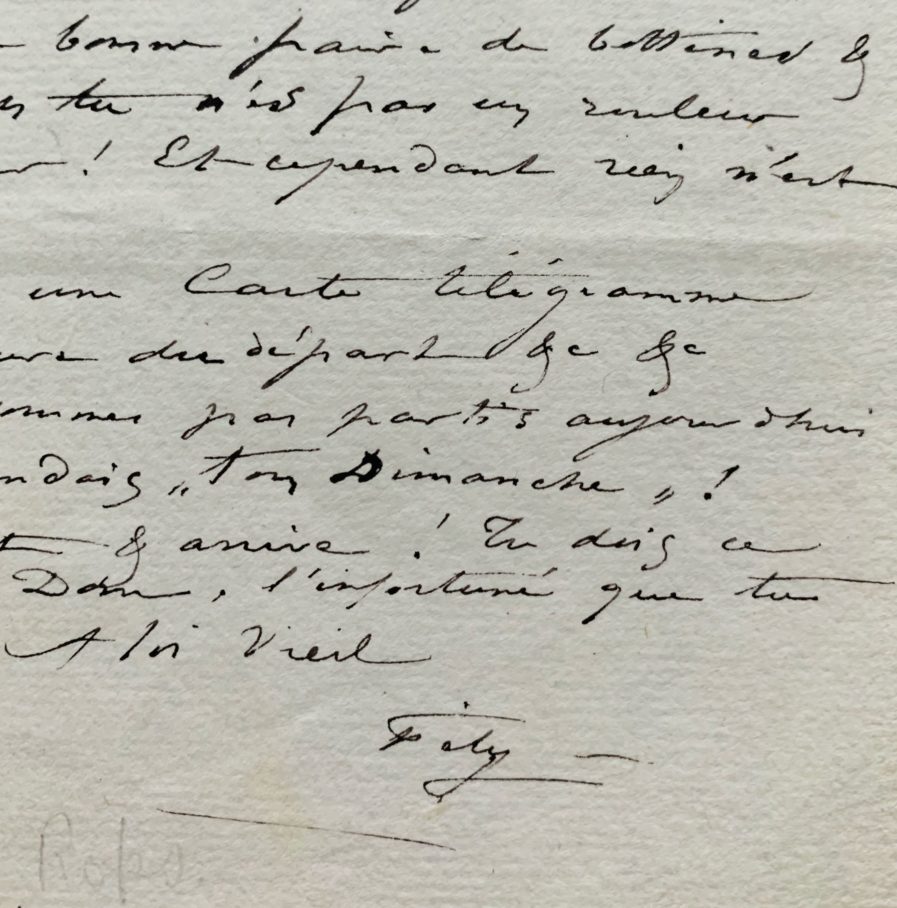 bonne paire de bottines &
tu n'es pas un rouleur
! Et cependant rien n'est
une Carte télégramme
du départ &c &c
pas partis aujourdhui
„ton Dimanche „ !
& arrive ! Tu dois ce
Dom, l'infortuné que tu
A toi Vieil
Fély
Rops